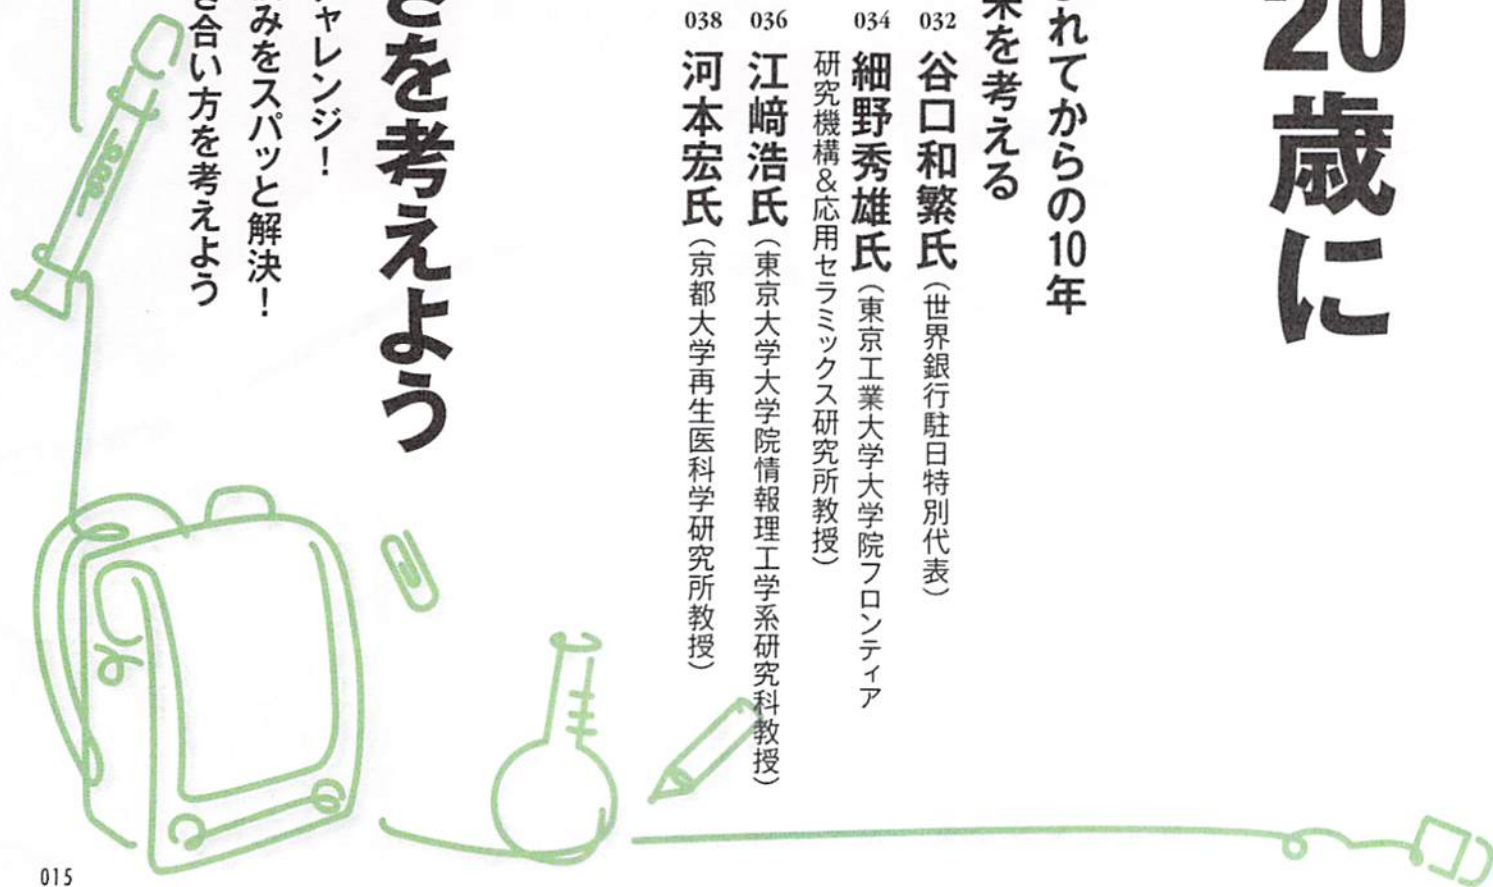 20歳に
れてからの10年
来を考える
032 谷口和繁氏（世界銀行駐日特別代表）
034 細野秀雄氏（東京工業大学大学院フロンティア
研究機構&応用セラミックス研究所教授）
036 江﨑浩氏（東京大学大学院情報理工学系研究科教授）
038 河本宏氏（京都大学再生医科学研究所教授）
を考えよう
ャレンジ！
みをスパッと解決！
合い方を考えよう
015